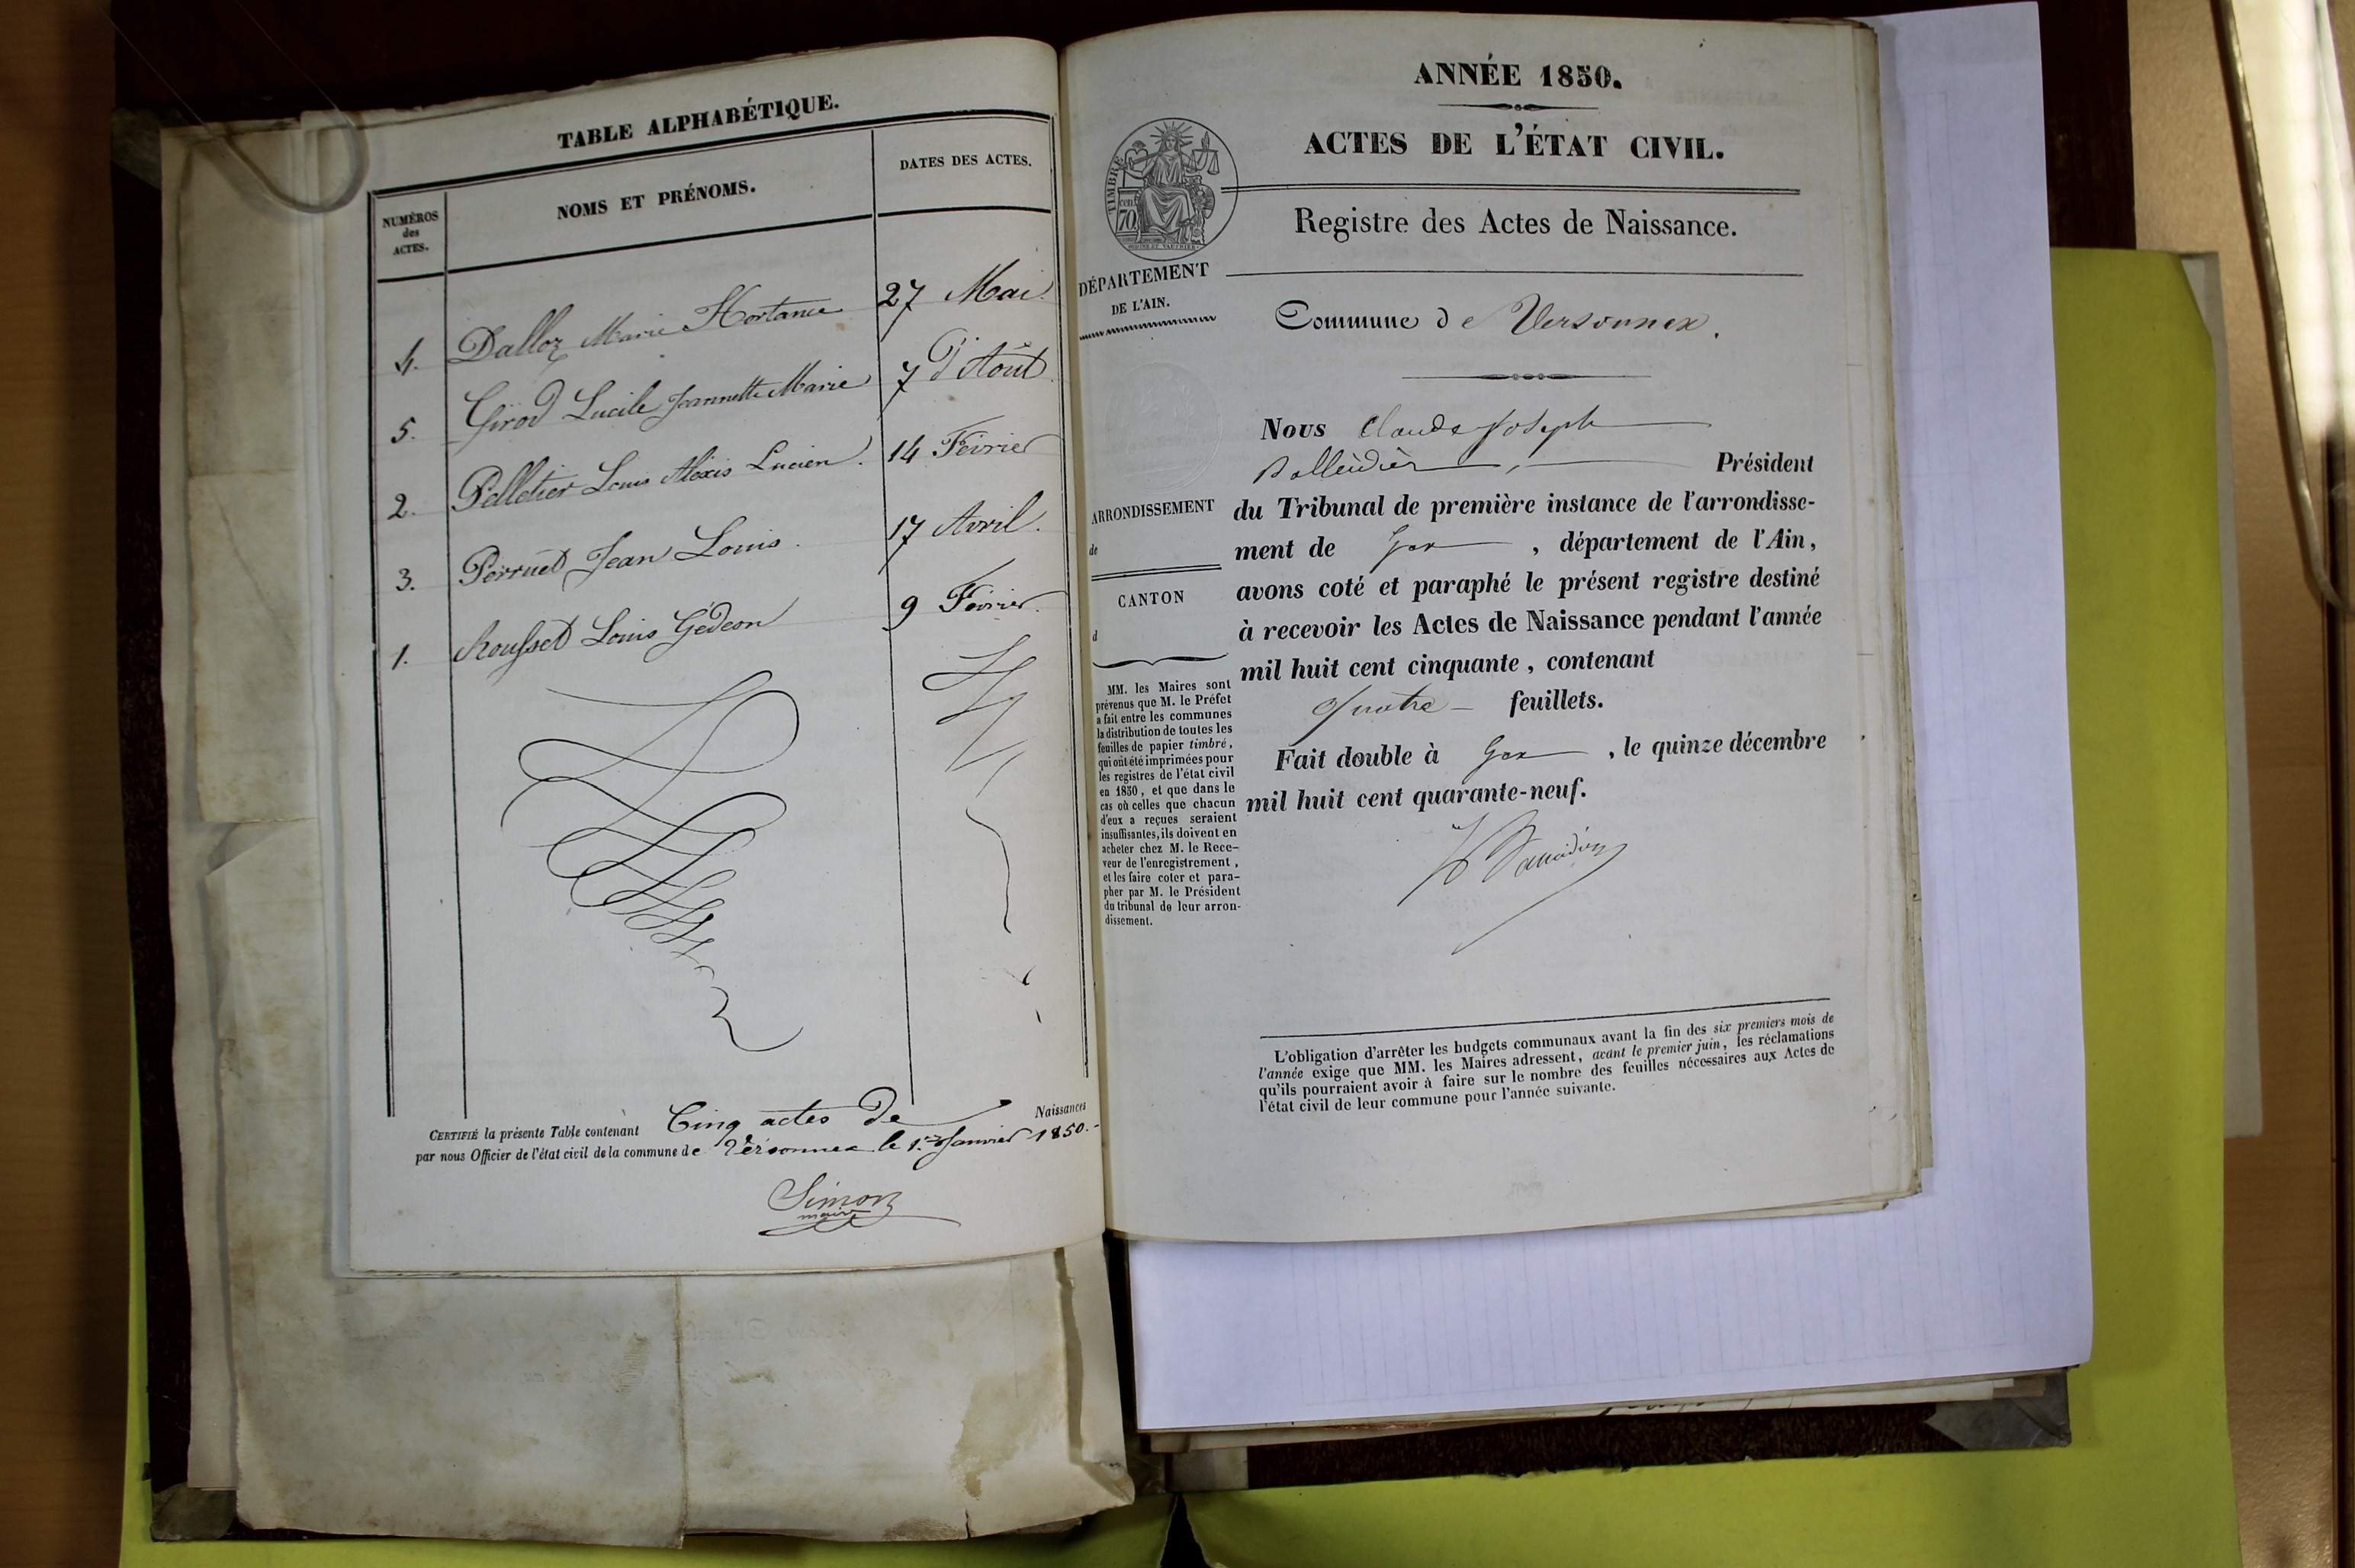 TABLE ALPHABÉTIQUE.
NUMÉROS
des
ACTES.
NOMS ET PRÉNOMS.
DATES DES ACTES.
4. Dalloz Marie Hortance 27 Mai.
5. Girod Lucile Jeannette Marie 7 d'Août
2. Pelletier Louis Aléxis Lucien. 14 Février
3. Perruet Jean Louis. 17 Avril.
1. Rousset Louis Gédeon 9 Février.
CERTIFIÉ la présente Table contenant Cinq actes De Naissances
par nous Officier de l'état civil de la commune de Versonnex le 1.er Janvier 1850.
Simon
maire
ANNÉE 1850.
ACTES DE L'ÉTAT CIVIL.
TIMBRE
cen
70
Registre des Actes de Naissance.
DÉPARTEMENT
DE L'AIN.
Commune de Versonnex.
Nous Claude Joseph
Président
du Tribunal de première instance de l'arrondisse-
ment de Gex, département de l'Ain,
avons coté et paraphé le présent registre destiné
à recevoir les Actes de Naissance pendant l'année
mil huit cent cinquante, contenant
quatre feuillets.
Fait double à Gex, le quinze décembre
mil huit cent quarante-neuf.
ARRONDISSEMENT
de
CANTON
d
MM. les Maires sont
prévenus que M. le Préfet
a fait entre les communes
la distribution de toutes les
feuilles de papier timbré,
qui ont été imprimées pour
les registres de l'état civil
en 1850, et que dans le
cas où celles que chacun
d'eux a reçues seraient
insuffisantes, ils doivent en
acheter chez M. le Rece-
veur de l'enregistrement,
et les faire coter et para-
pher par M. le Président
du tribunal de leur arron-
dissement.
L'obligation d'arrêter les budgets communaux avant la fin des six premiers mois de
l'année exige que MM. les Maires adressent, avant le premier juin, les réclamations
qu'ils pourraient avoir à faire sur le nombre des feuilles nécessaires aux Actes de
l'état civil de leur commune pour l'année suivante.